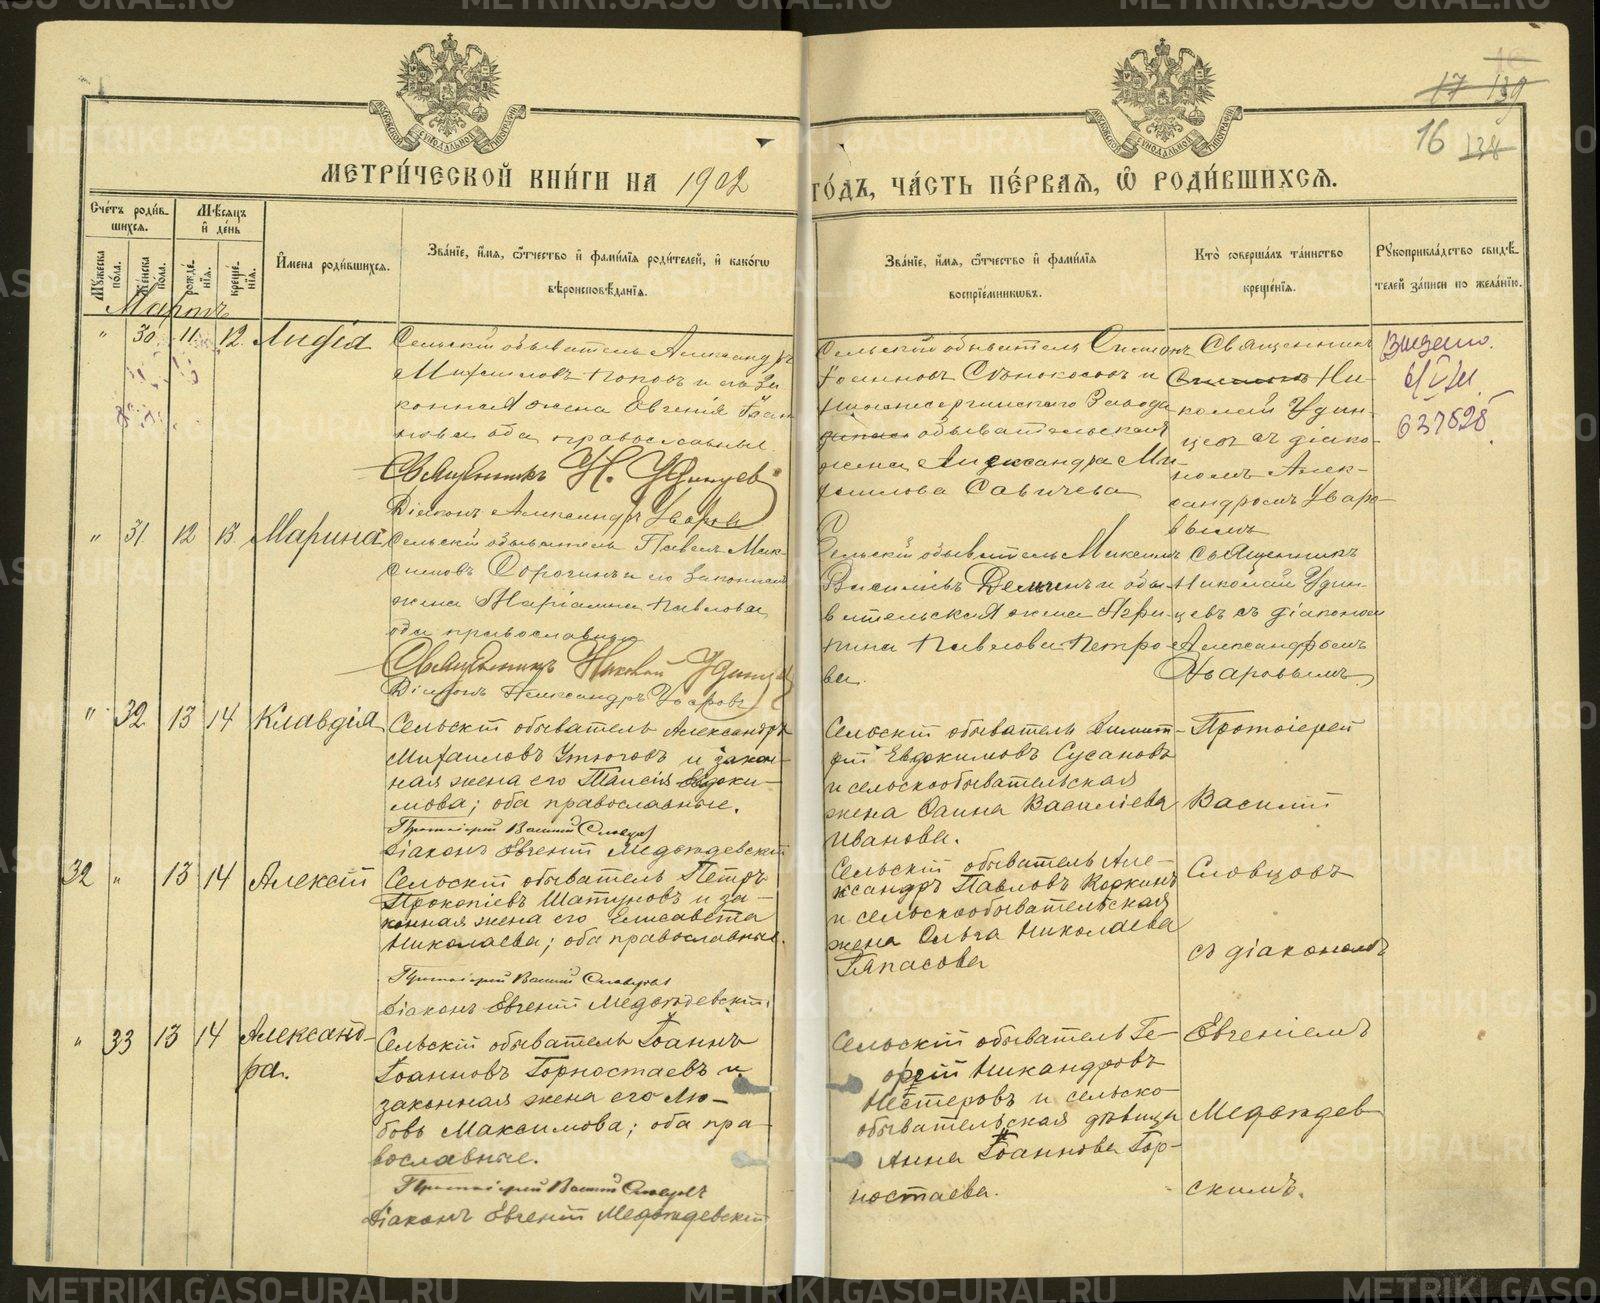 МЕТРИ́ЧЕСКОЙ КНИ́ГИ НА 1902 ГО́ДЪ, ЧА́СТЬ ПЕ́РВАѦ, Ѿ РОДИ́ВШИХСѦ.
17 139
16 138
Сче́тъ роди́в-
шихсѧ.
Мѣсѧцъ
и҆ де́нь
Му́жеска
по́ла.
Же́нска
по́ла.
рожде́-
нїѧ.
креще́-
нїѧ.
И҆мена роди́вшихсѧ.
Зва́нїе, и҆́мѧ, ѻ҆́тчество и҆ фами́лїѧ роди́телей, и҆ како́гѡ
вѣроисповѣ́данїѧ.
Зва́нїе, и҆́мѧ, ѻ҆́тчество и҆ фами́лїѧ
воспрїе́мникѡвъ.
Кто̀ соверша́лъ та́инство
креще́нїѧ.
Рꙋкоприкла́дство свидѣ́-
телей за́писи по жела́нїю.
Мартъ
" 30 11 12 Лидія
Сельскій обыватель Александръ
Михаиловъ Поповъ и его за-
конная жена Евгенія Іоан-
нова оба православные
Священникъ Н. Удинцевъ
Діаконъ Александръ Уваровъ
Сельскій обыватель Симеонъ
Іоанновъ Сѣнокосовъ и
Нижнесергинскаго Завода
обывательская
жена Александра Ми-
хаилова Савичева
Священникъ
Ни-
колай Удин-
цевъ съ діако-
номъ Алек-
сандромъ Уваро-
вымъ
637525
" 31 12 13 Марина
Сельскій обыватель Павелъ Мак-
симовъ Сорогинъ и его законная
жена Маріамна Павлова
оба православные
Священникъ Николай Удинцевъ
Діаконъ Александръ Уваровъ
Сельскій обыватель Максимъ
Василіевъ Деминъ и обы-
вательская жена Агри-
пина Павлова Петро-
ва.
Священникъ
Николай Удин-
цевъ съ діакономъ
Александромъ
Уваровымъ
" 32 13 14 Клавдія
Сельскій обыватель Александръ
Михаиловъ Утюговъ и закон-
ная жена его Таисія Евдоки-
мова; оба православные.
Протоіерей Василій Словцовъ
Діаконъ Евгеній Медвѣдевскій
Сельскій обыватель Димит-
рій Евдокимовъ Сусановъ
и сельскообывательская
жена Фаина Василіева
Иванова.
Протоіерей
Василій
32 " 13 14 Алексій
Сельскій обыватель Петръ
Прокопіевъ Шатуновъ и за-
конная жена его Елисавета
Николаева; оба православные.
Протоіерей Василій Словцовъ
Діаконъ Евгеній Медвѣдевскій
Сельскій обыватель Але-
ксандръ Павловъ Коркинъ
и сельскообывательская
жена Ольга Николаева
Тапасова
Словцовъ
съ діакономъ
" 33 13 14 Александ-
ра.
Сельскій обыватель Іоаннъ
Іоанновъ Горностаевъ и
законная жена его Лю-
бовь Максимова; оба пра-
вославные.
Протоіерей Василій Словцовъ
Діаконъ Евгеній Медвѣдевскій
Сельскій обыватель Ге-
оргій Никандровъ
Нестеровъ и сельско-
обывательская дѣвица
Анна Іоаннова Гор-
ностаева.
Евгеніемъ
Медвѣдев-
скимъ.
METRIKI.GASO-URAL.RU